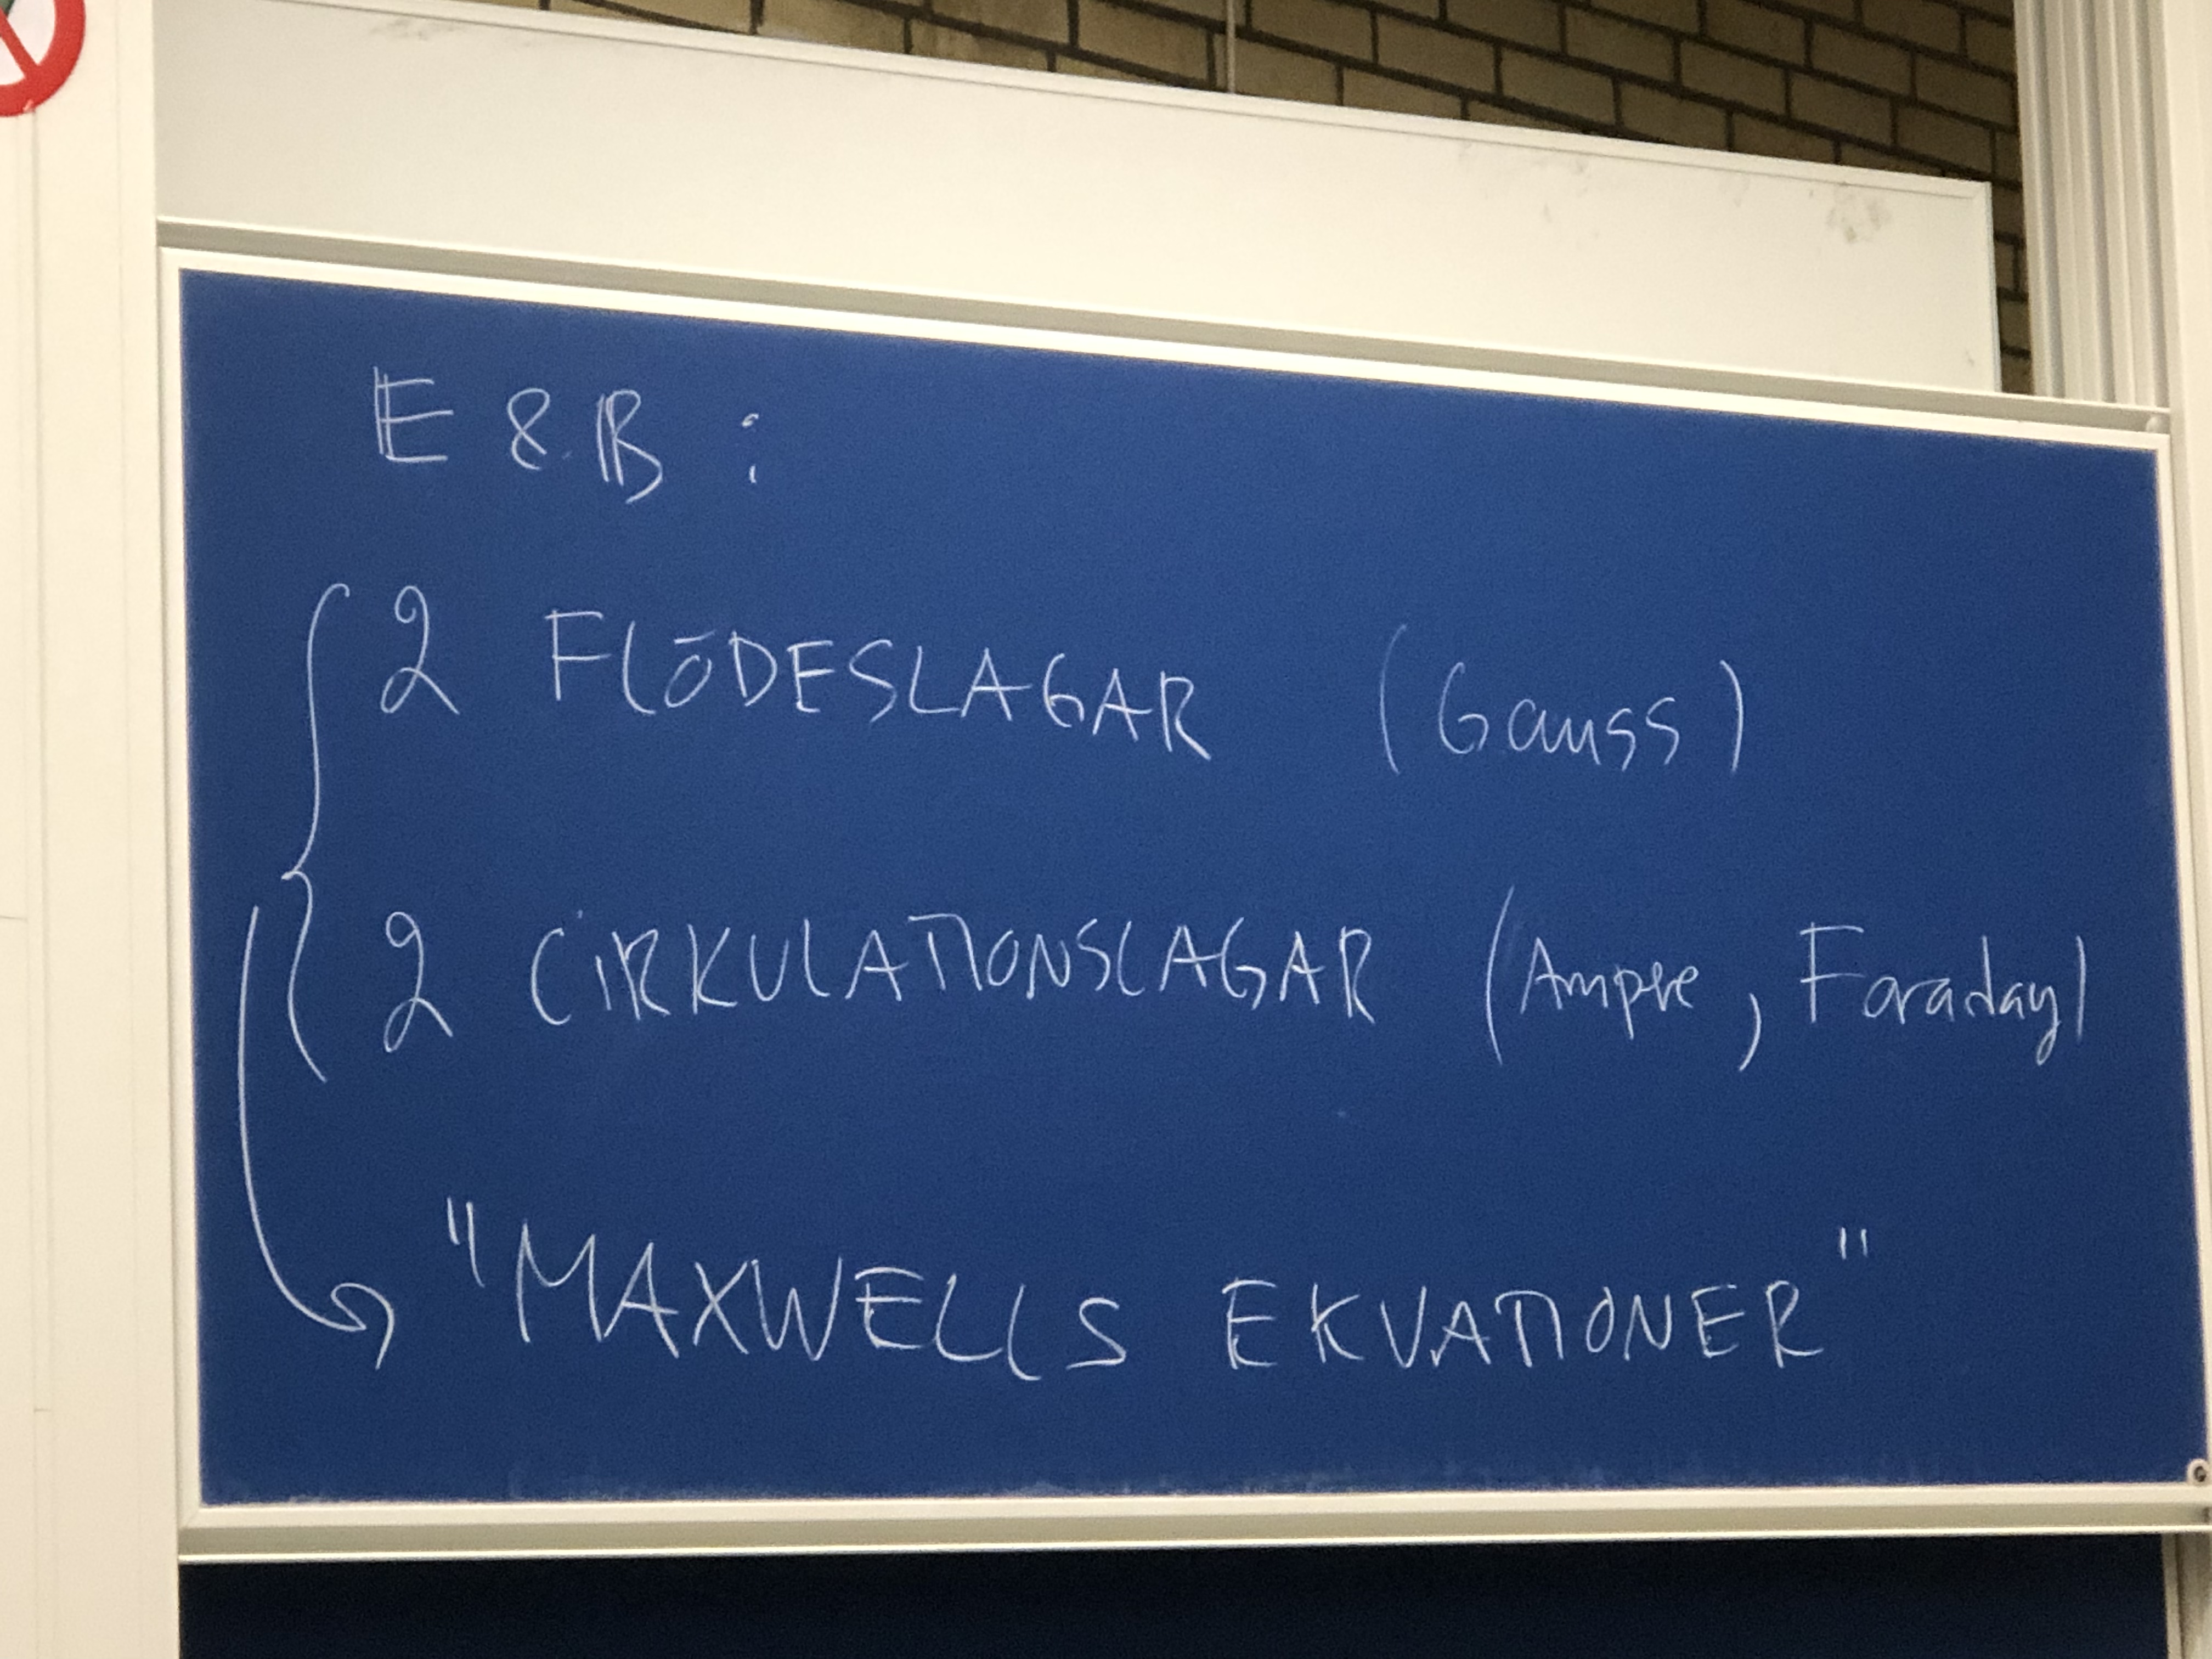 E & B :
2 FLÖDESLAGAR (Gauss)
2 CIRKULATIONSLAGAR (Ampere, Faraday)
"MAXWELLS EKVATIONER"